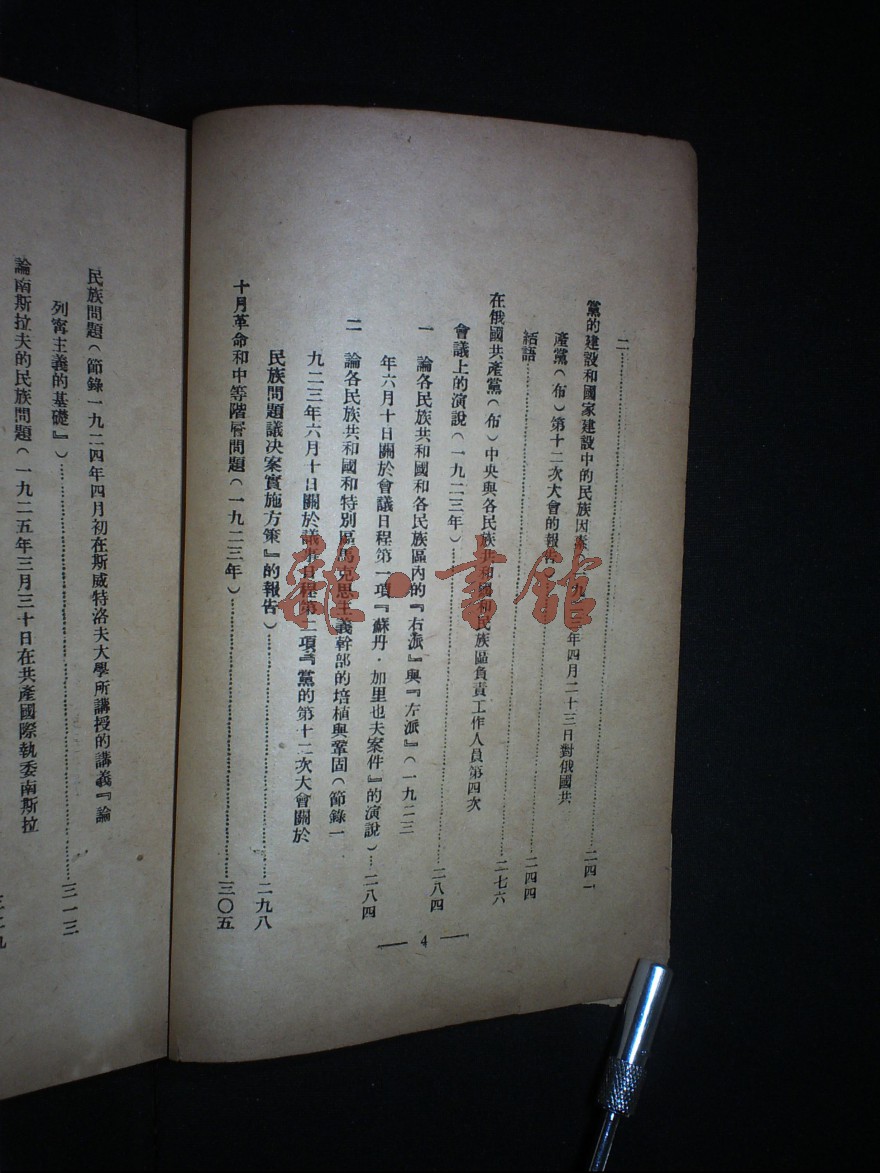 二……二四一
黨的建設和國家建設中的民族因素
年四月二十三日對俄國共
產黨（布）第十二次大會的報告
結語……二四四
在俄國共產黨（布）中央與各民族共和國和民族區負責工作人員第四次
會議上的演說（一九二三年）……二七六
一 論各民族共和國和各民族區內的『右派』與『左派』（一九二三
年六月十日關於會議日程第一項『蘇丹·加里也夫案件』的演說）…二八四
二 論各民族共和國和特別區馬克思主義幹部的培植與鞏固（節錄一
九二三年六月十日關於議事日程第二項『黨的第十二次大會關於
民族問題議決案實施方策』的報告）……二九八
十月革命和中等階層問題（一九二三年）……三〇五
— 4 —
民族問題（節錄一九二四年四月初在斯威特洛夫大學所講授的講義『論
列寧主義的基礎』）……三一三
論南斯拉夫的民族問題（一九二五年三月三十日在共產國際執委南斯拉
雜·書館